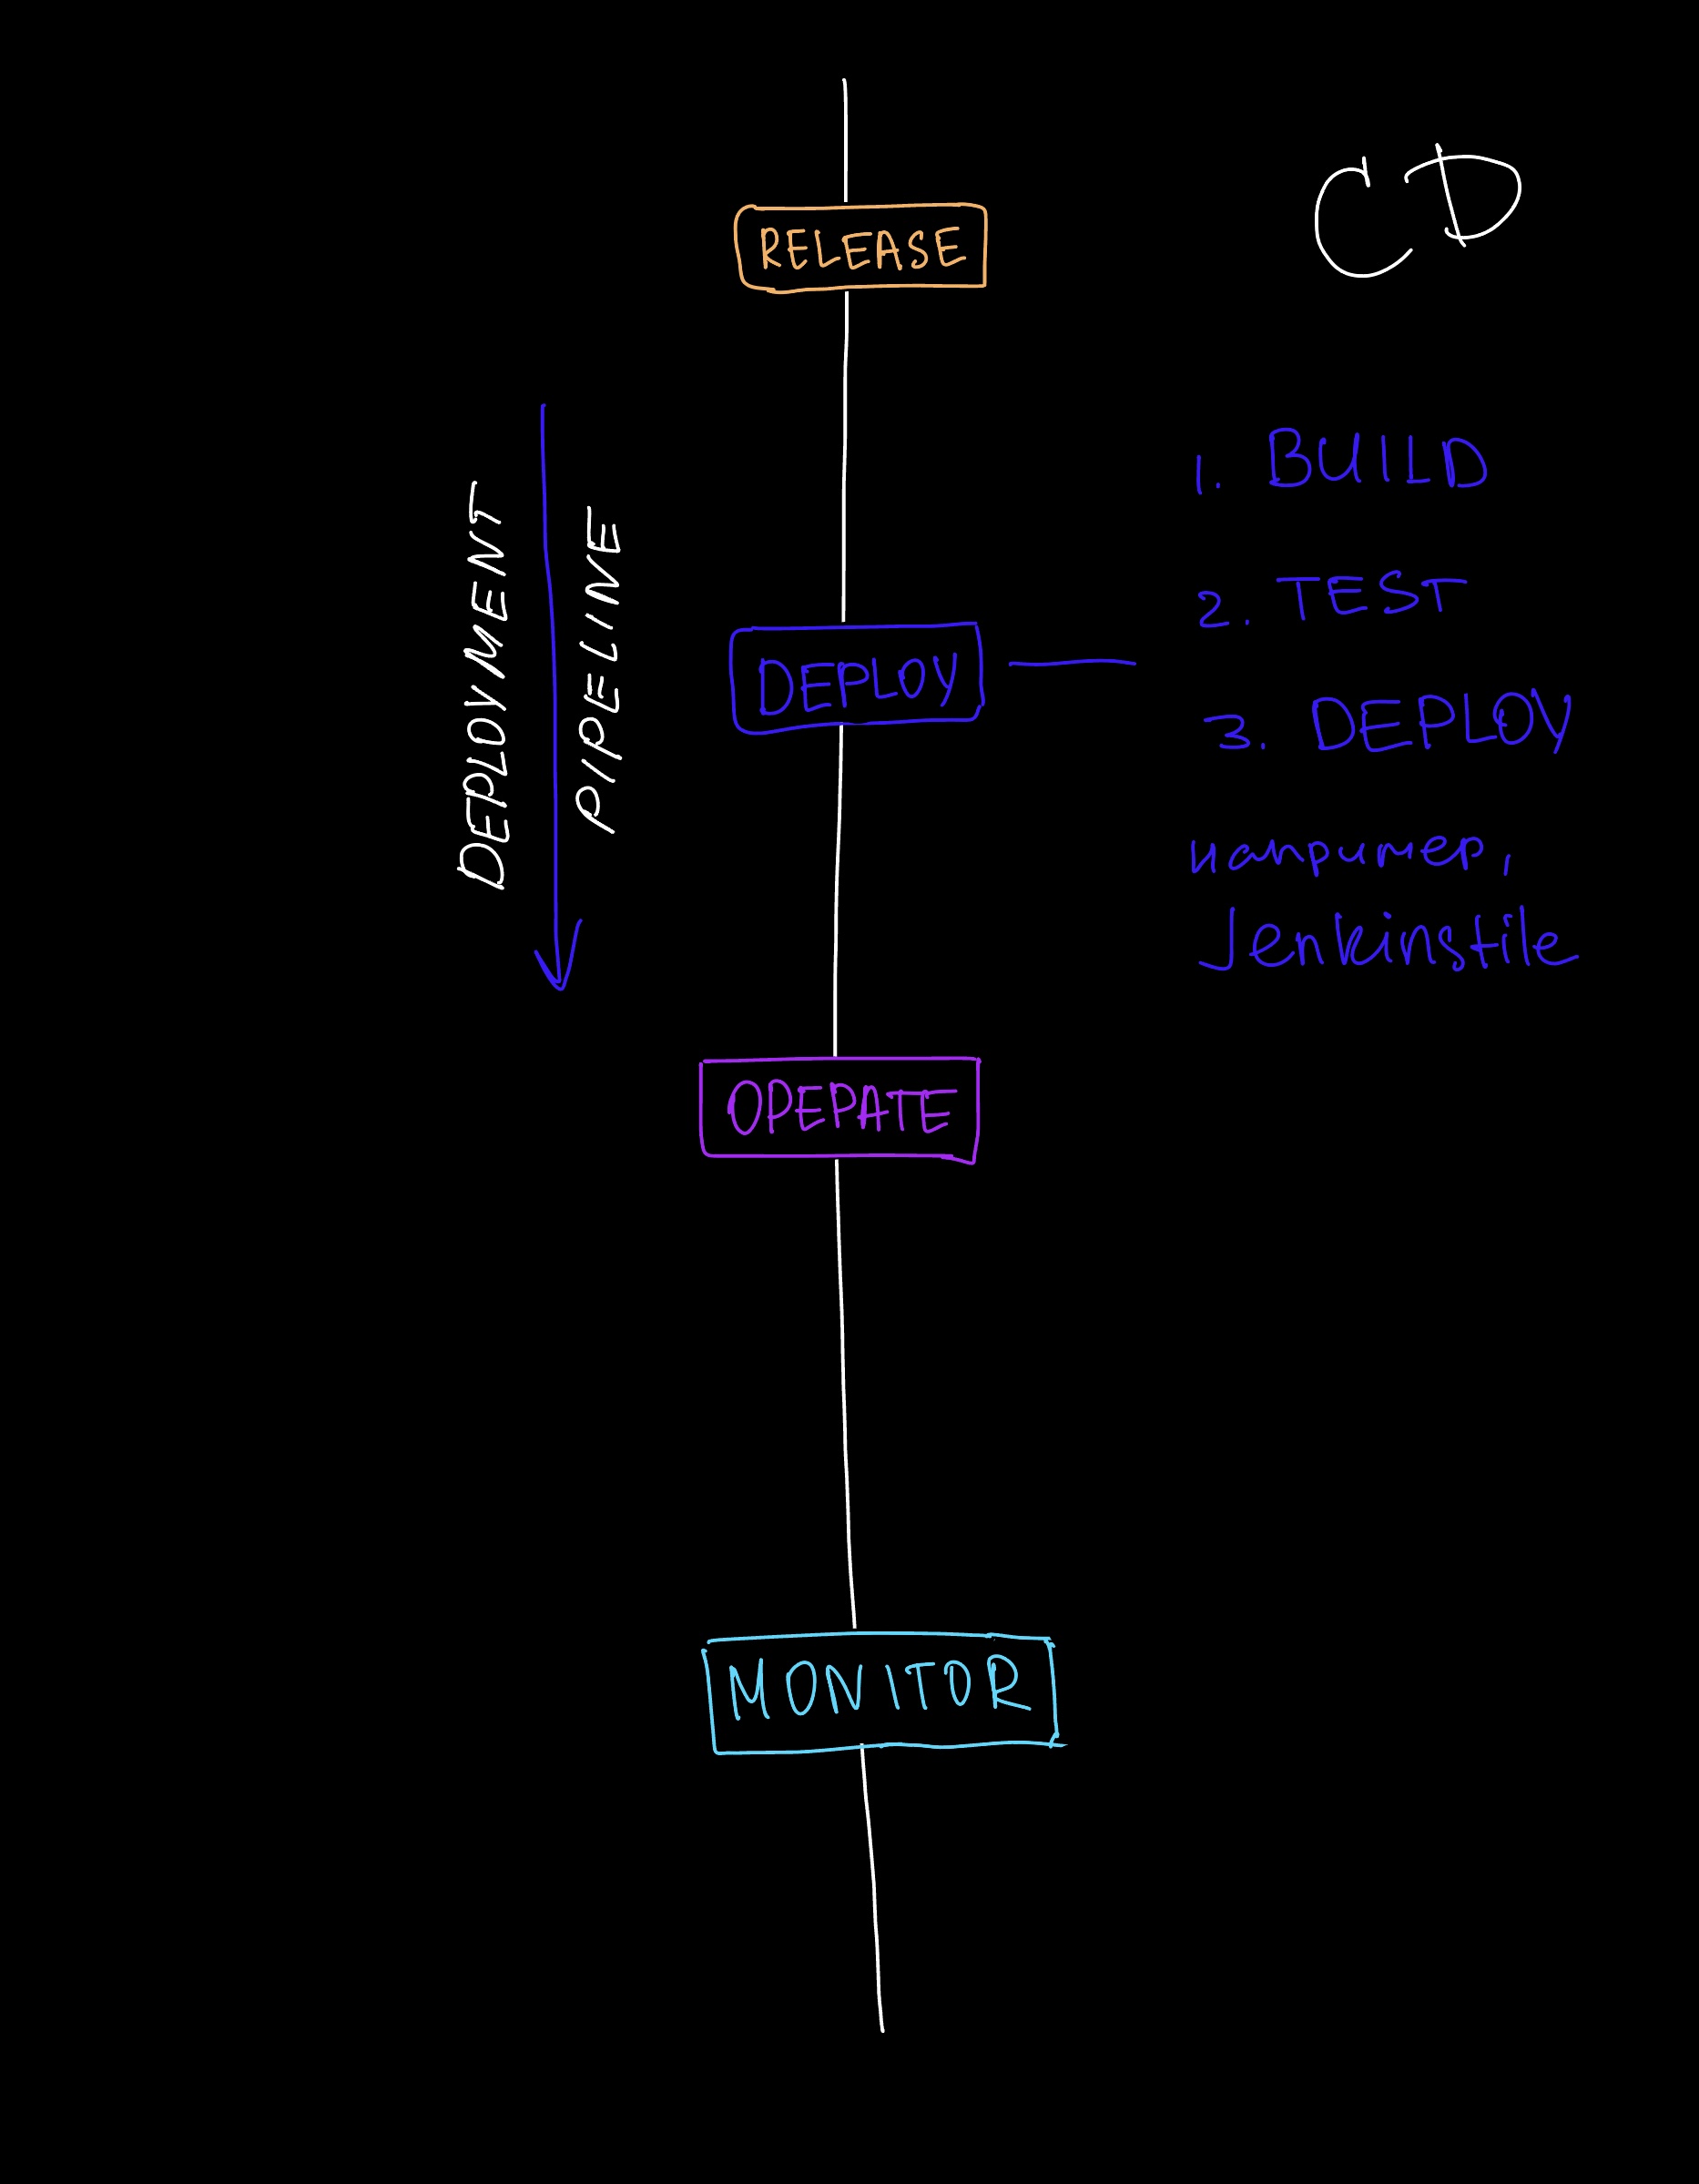 CD
RELEASE
DEPLOYMENT
PIPELINE
1. BUILD
2. TEST
DEPLOY
3. DEPLOY
например,
Jenkinsfile
OPEPATE
MONITOR